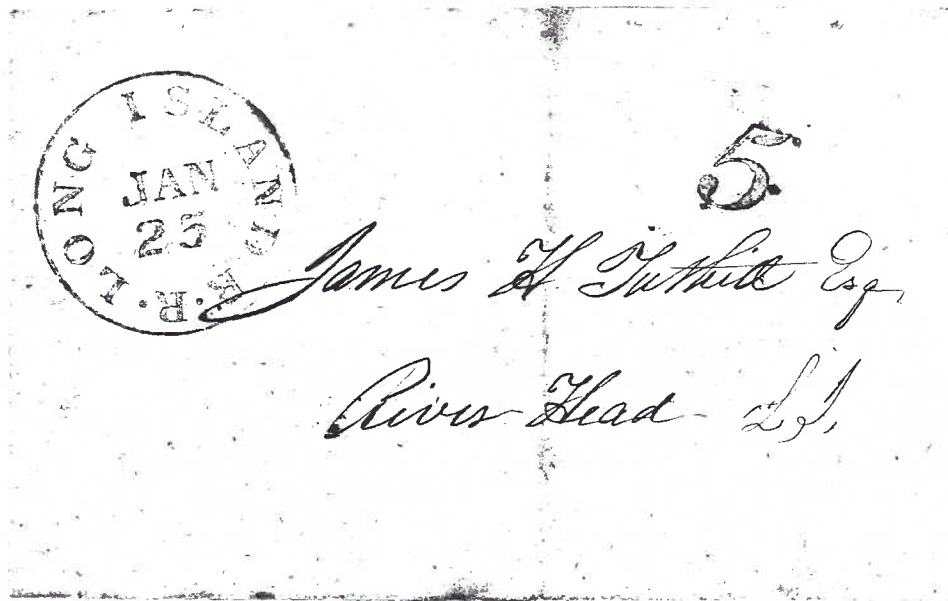 LONG ISLAND R.R.
JAN
25
5
James H Tuthill Esq.
River Head L.I.